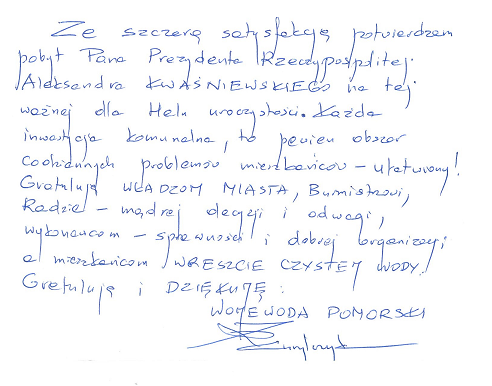 Ze szczerą satysfakcją potwierdzam
pobyt Pana Prezydenta Rzeczypospolitej
Aleksandra KWAŚNIEWSKIEGO na tej
ważnej dla Helu uroczystości. Każda
inwestycja komunalna, to pewien obszar
codziennych problemów mieszkańców – ułatwiony!
Gratuluję WŁADZOM MIASTA, Burmistrzowi,
Radzie – mądrej decyzji i odwagi,
wykonawcom – sprawności i dobrej organizacji
a mieszkańcom WRESZCIE CZYSTEJ WODY.
Gratuluję i DZIĘKUJĘ:
WOJEWODA POMORSKI